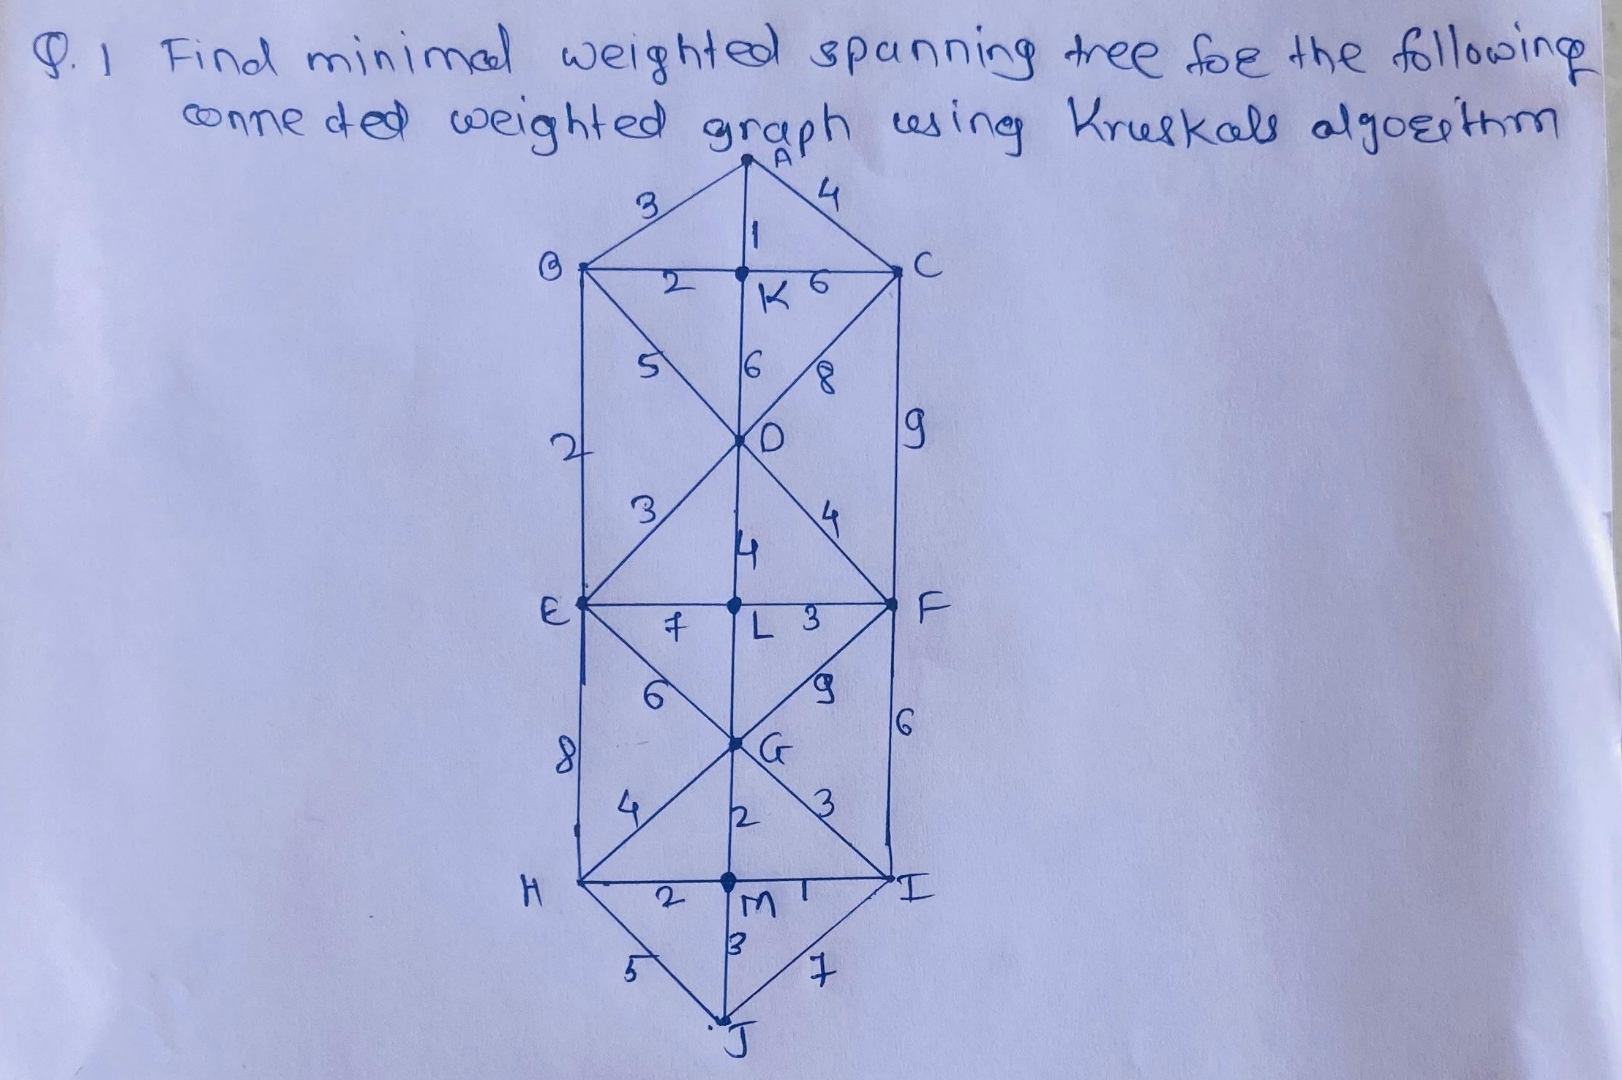 Q.1 Find minimal weighted spanning tree for the following
connected weighted graph using Kruskals algorithm
A
3
4
1
B
C
2
K
6
5
6
8
2
D
9
3
4
4
E
7
L
3
F
6
9
8
G
6
4
2
3
H
2
M
1
I
3
5
7
J